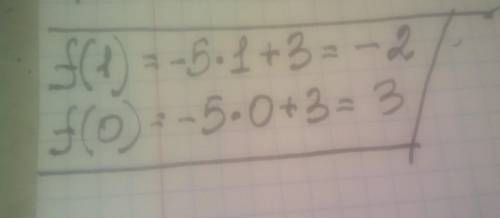 f(1) = -5·1+3 = -2
f(0) = -5·0+3 = 3